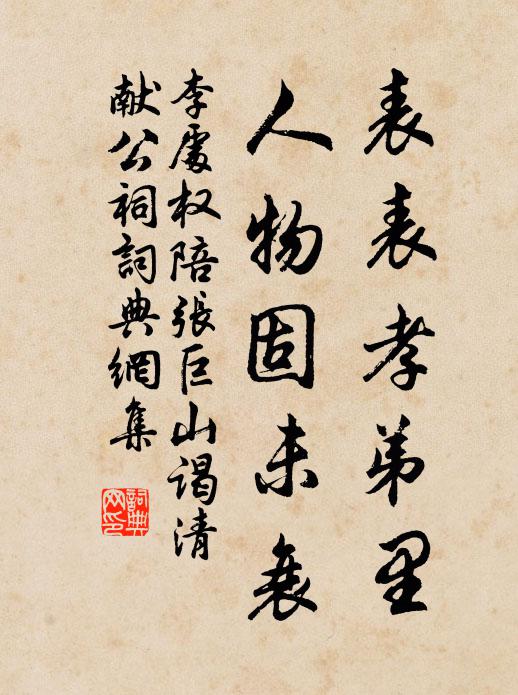 表表孝弟里
人物固未衰
李處权陪張巨山谒清
献公祠詞典網集
詞典
网印